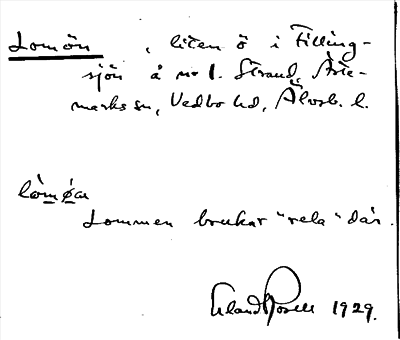 Lomön, liten ö i Tilling-
sjön å no 1. Strand, Årte-
marks sn, Vedbo hd, Älvsb. l.
lòmø̀ca
Lommen brukar "rela" där.
Erland Rosell 1929.